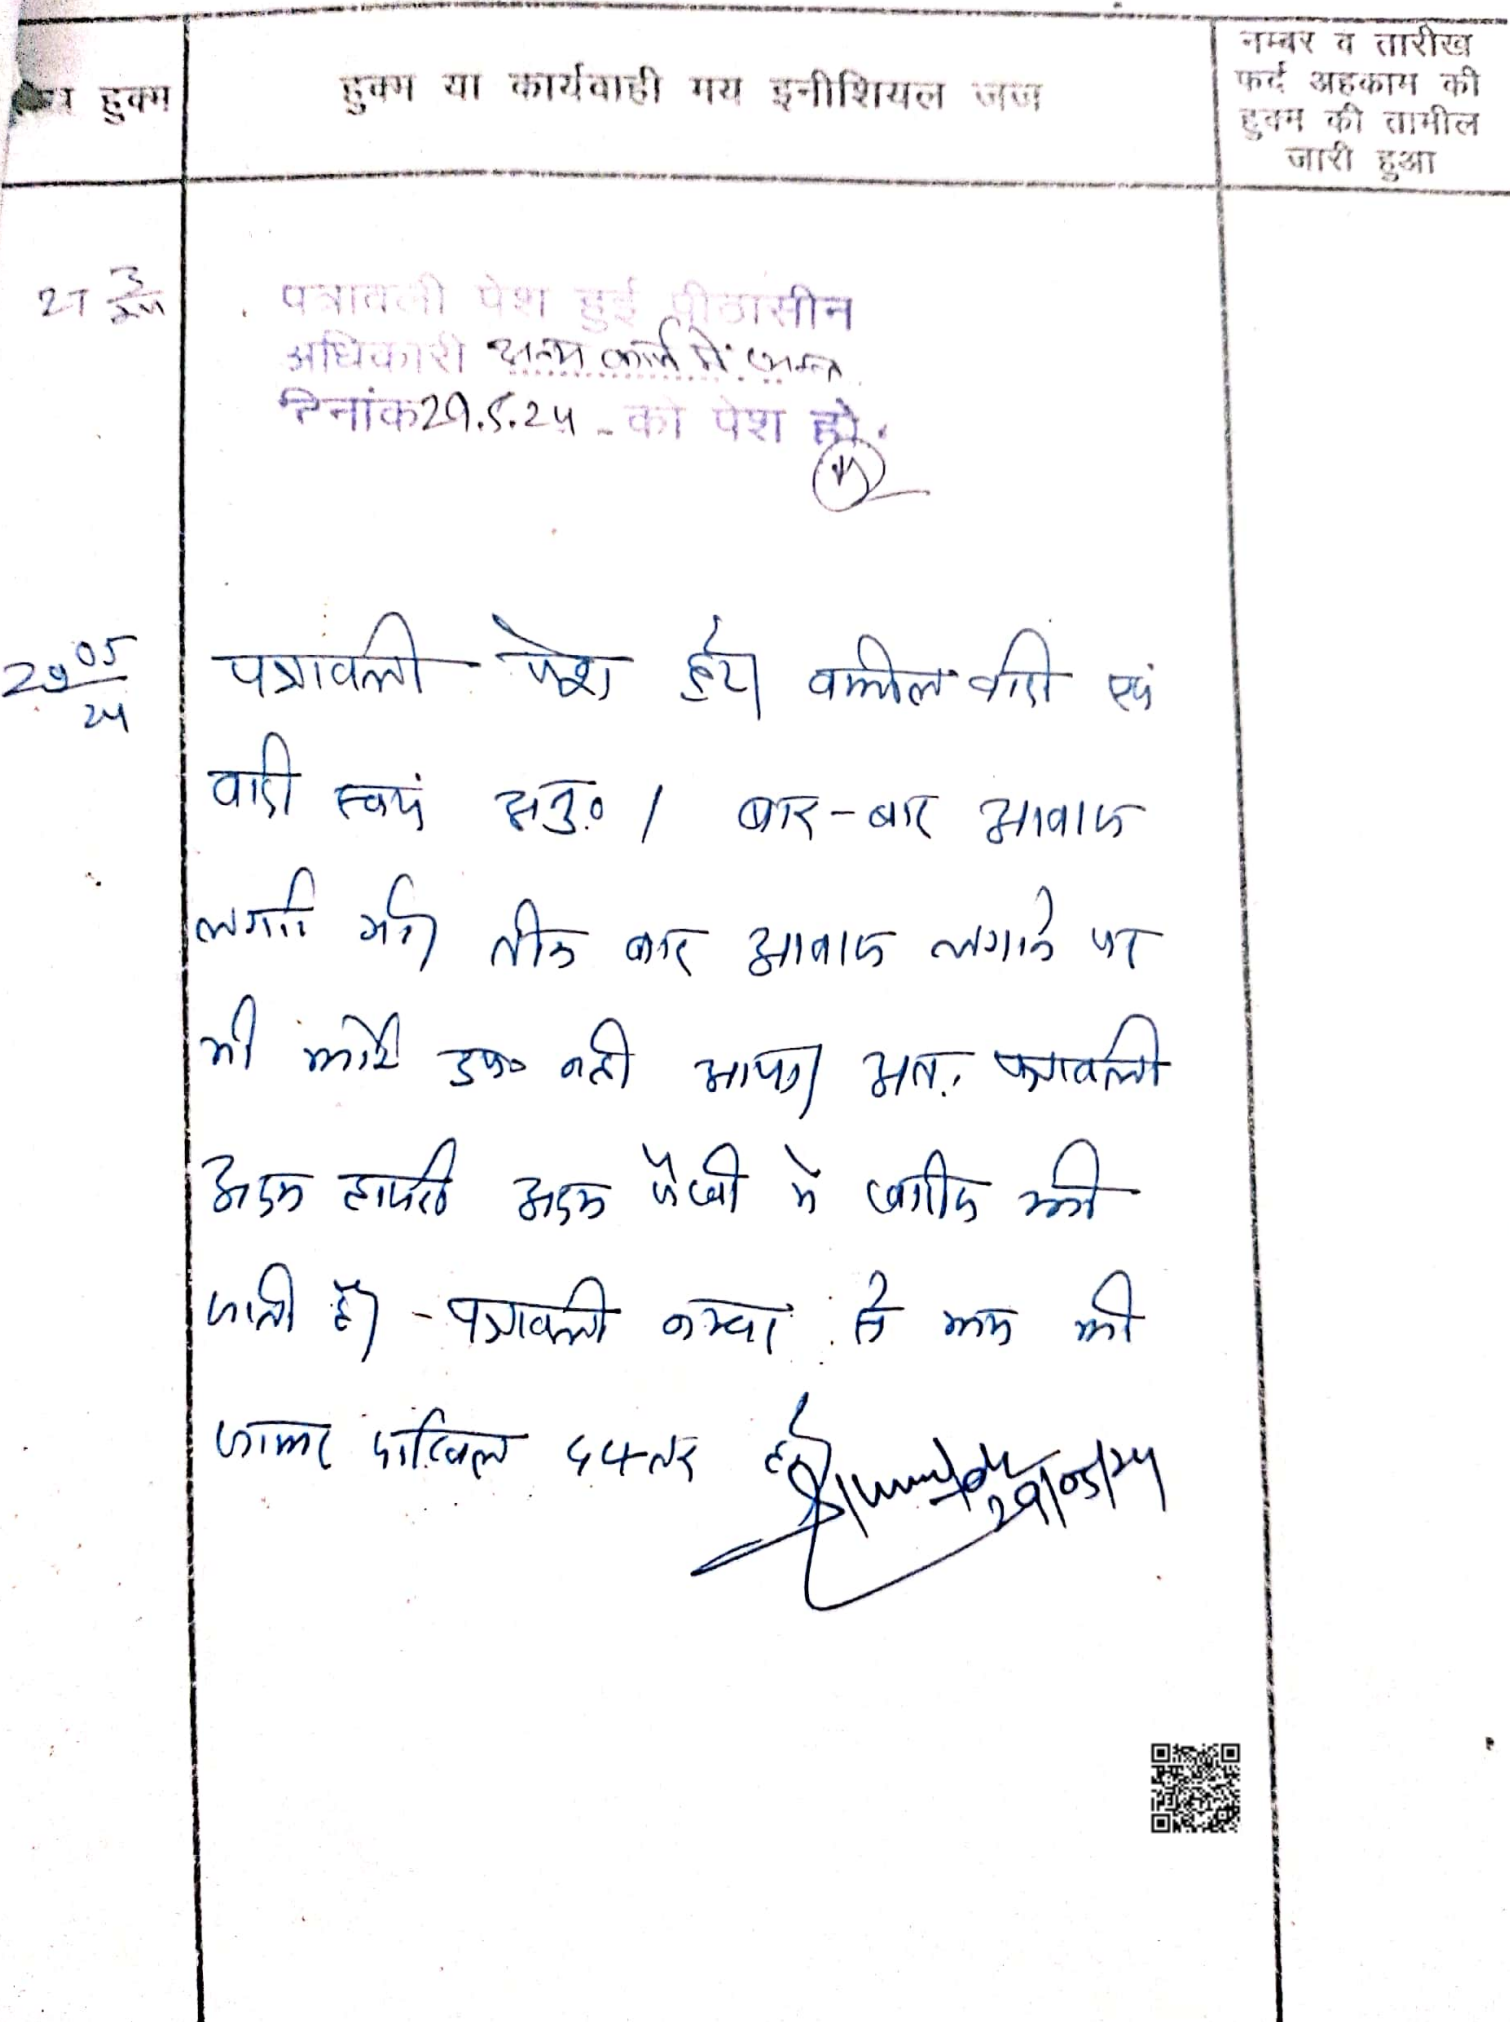 हुक्म
हुक्म या कार्यवाही मय इनीशियल जज
नम्बर व तारीख
फर्द अहकाम की
हुक्म की तामील
जारी हुआ
27 3/24
पत्रावली पेश हुई पीठासीन
अधिकारी अन्य कार्य में व्यस्त
दिनांक 29.5.24 - को पेश हो.
29 05/24
पत्रावली पेश हुई। वकील वादी एवं
वादी स्वयं अनु० । बार-बार आवाज
लगाई गई। तीन बार आवाज लगाने पर
भी कोई उप० नहीं आया। अतः पत्रावली
अदम हाजरी अदम पैरवी में खारीज की
जाती है। - पत्रावली नम्बर से कम की
जाकर दाखिल दफ्तर हो।
29/05/24